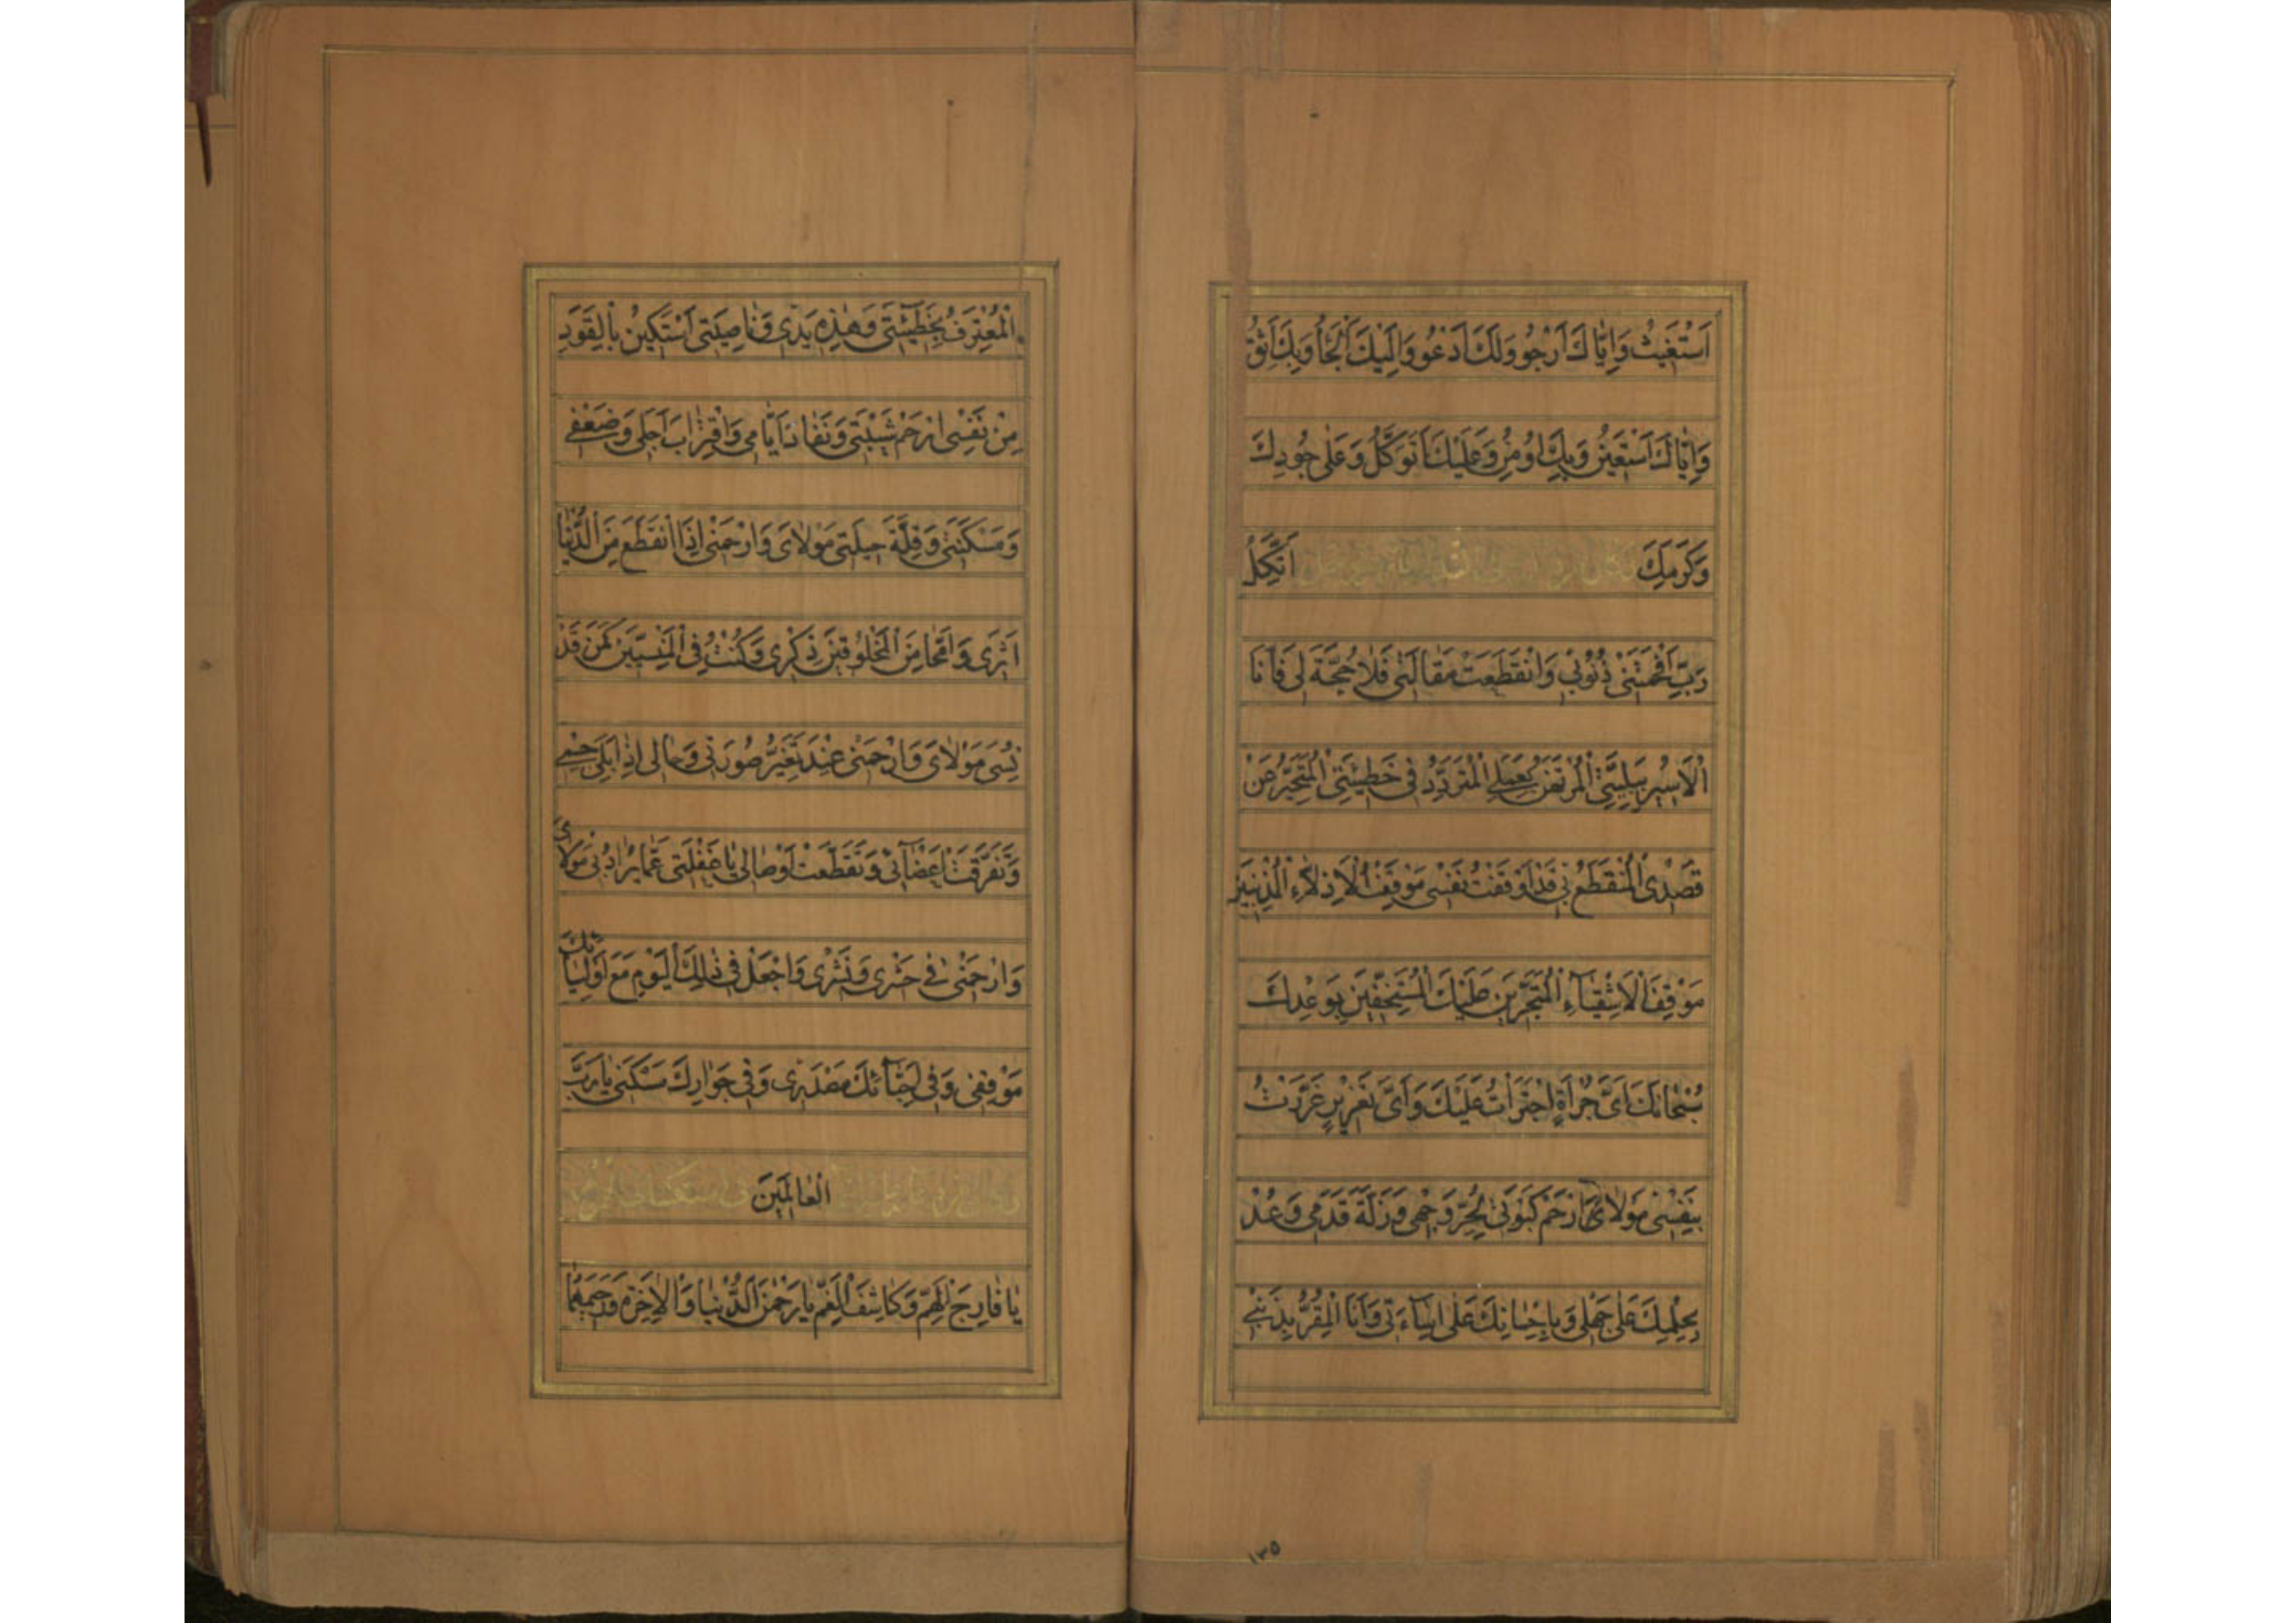 اَسْتَغيثُ وَاِيّاكَ اَرْجُو وَلَكَ اَدْعُو وَاِلَيْكَ اَلْجَأُ وَبِكَ اَثِقُ
وَاِيّاكَ اَسْتَعينُ وَبِكَ اُومِنُ وَعَلَيْكَ اَتَوَكَّلُ وَعَلى جُودِكَ
وَكَرَمِكَ اَتَّكِلُ
رَبِّ اَفْحَمَتْنى ذُنُوبى وَانْقَطَعَتْ مَقالَتى فَلا حُجَّةَ لى فَاَنَا
الْاَسيرُ بِبَلِيَّتى الْمُرْتَهَنُ بِعَمَلى الْمُتَرَدِّدُ فى خَطيئَتى الْمُتَحَيِّرُ عَنْ
قَصْدى الْمُنْقَطَعُ بى قَدْ اَوْقَفْتُ نَفْسى مَوْقِفَ الْاَذِلّاءِ الْمُذْنِبينَ
مَوْقِفَ الْاَشْقِياءِ الْمُتَجَرّينَ عَلَيْكَ الْمُسْتَخِفّينَ بِوَعْدِكَ
سُبْحانَكَ اَىَّ جُرْأَةٍ اجْتَرَأْتُ عَلَيْكَ وَاَىَّ تَغْريرٍ غَرَّرْتُ
بِنَفْسى مَوْلاىَ ارْحَمْ كَبْوَتى لِحُرِّ وَجْهى وَزَلَّةَ قَدَمى وَعُدْ
بِحِلْمِكَ عَلى جَهْلى وَبِاِحْسانِكَ عَلى اِساءَتى وَاَنَا الْمُقِرُّ بِذَنْبى
١٣٥
الْمُعْتَرِفُ بِخَطيئَتى وَهذِهِ يَدى وَناصِيَتى اَسْتَكينُ بِالْقَوَدِ
مِنْ نَفْسى ارْحَمْ شَيْبَتى وَنَفادَ اَيّامى وَاقْتِرابَ اَجَلى وَضَعْفى
وَمَسْكَنَتى وَقِلَّةَ حيلَتى مَوْلاىَ وَارْحَمْنى اِذَا انْقَطَعَ مِنَ الدُّنْيا
اَثَرى وَامَّحا مِنَ الْمَخْلُوقينَ ذِكْرى وَكُنْتُ فِى الْمَنْسِيّينَ كَمَنْ قَدْ
نُسِىَ مَوْلاىَ وَارْحَمْنى عِنْدَ تَغَيُّرِ صُورَتى وَحالى اِذا بَلِىَ جِسْمى
وَتَفَرَّقَتْ اَعْضآئى وَتَقَطَّعَتْ اَوْصالى يا غَفْلَتى عَمّا يُرادُ بى مَوْلاىَ
وَارْحَمْنى فى حَشْرى وَنَشْرى وَاجْعَلْ فى ذلِكَ الْيَوْمِ مَعَ اَوْلِيائِكَ
مَوْقِفى وَفى اَحِبّآئِكَ مَصْدَرى وَفى جِوارِكَ مَسْكَنى يا رَبَّ
الْعالَمينَ
يا فارِجَ الْهَمِّ وَكاشِفَ الْغَمِّ يا رَحْمنَ الدُّنْيا وَالْاخِرَةِ وَرَحيمَهُما